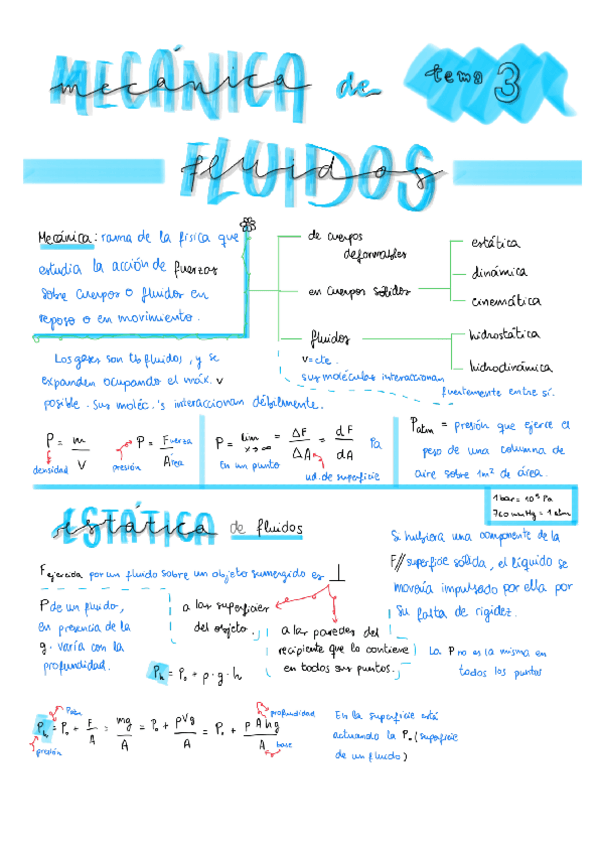 MECÁNICA de
tema 3
FLUIDOS
Mecánica: rama de la física que
estudia la acción de fuerzas
sobre cuerpos o fluidos en
reposo o en movimiento.
de cuerpos
deformables
en cuerpos sólidos
estática
dinámica
cinemática
fluidos
hidrostática
hidrodinámica
V=cte.
sus moléculas interaccionan
fuertemente entre sí.
Los gases son tb fluidos, y se
expanden ocupando el máx. V
posible. Sus moléc.'s interaccionan débilmente.
P = m / V
densidad
P = Fuerza / Área
presión
P = lim x→∞ = ΔF / ΔA = dF / dA Pa
en un punto
ud. de superficie
Patm = presión que ejerce el
peso de una columna de
aire sobre 1m² de área.
1 bar = 10⁵ Pa
760 mmHg = 1 atm
ESTÁTICA de fluidos
F ejercida por un fluido sobre un objeto sumergido es ⊥
a las superficies
del objeto.
a las paredes del
recipiente que lo contiene
en todos sus puntos.
P de un fluido,
en presencia de la
g. varía con la
profundidad.
Ph = P₀ + ρ·g·h
Si hubiera una componente de la
F// superficie sólida, el líquido se
movería impulsado por ella por
su falta de rigidez.
La P no es la misma en
todos los puntos
Ph = P₀ + F / A = mg / A = P₀ + ρVg / A = P₀ + ρAhg / A
Patm
presión
profundidad
base
En la superficie está
actuando la P₀ (superficie
de un fluido)